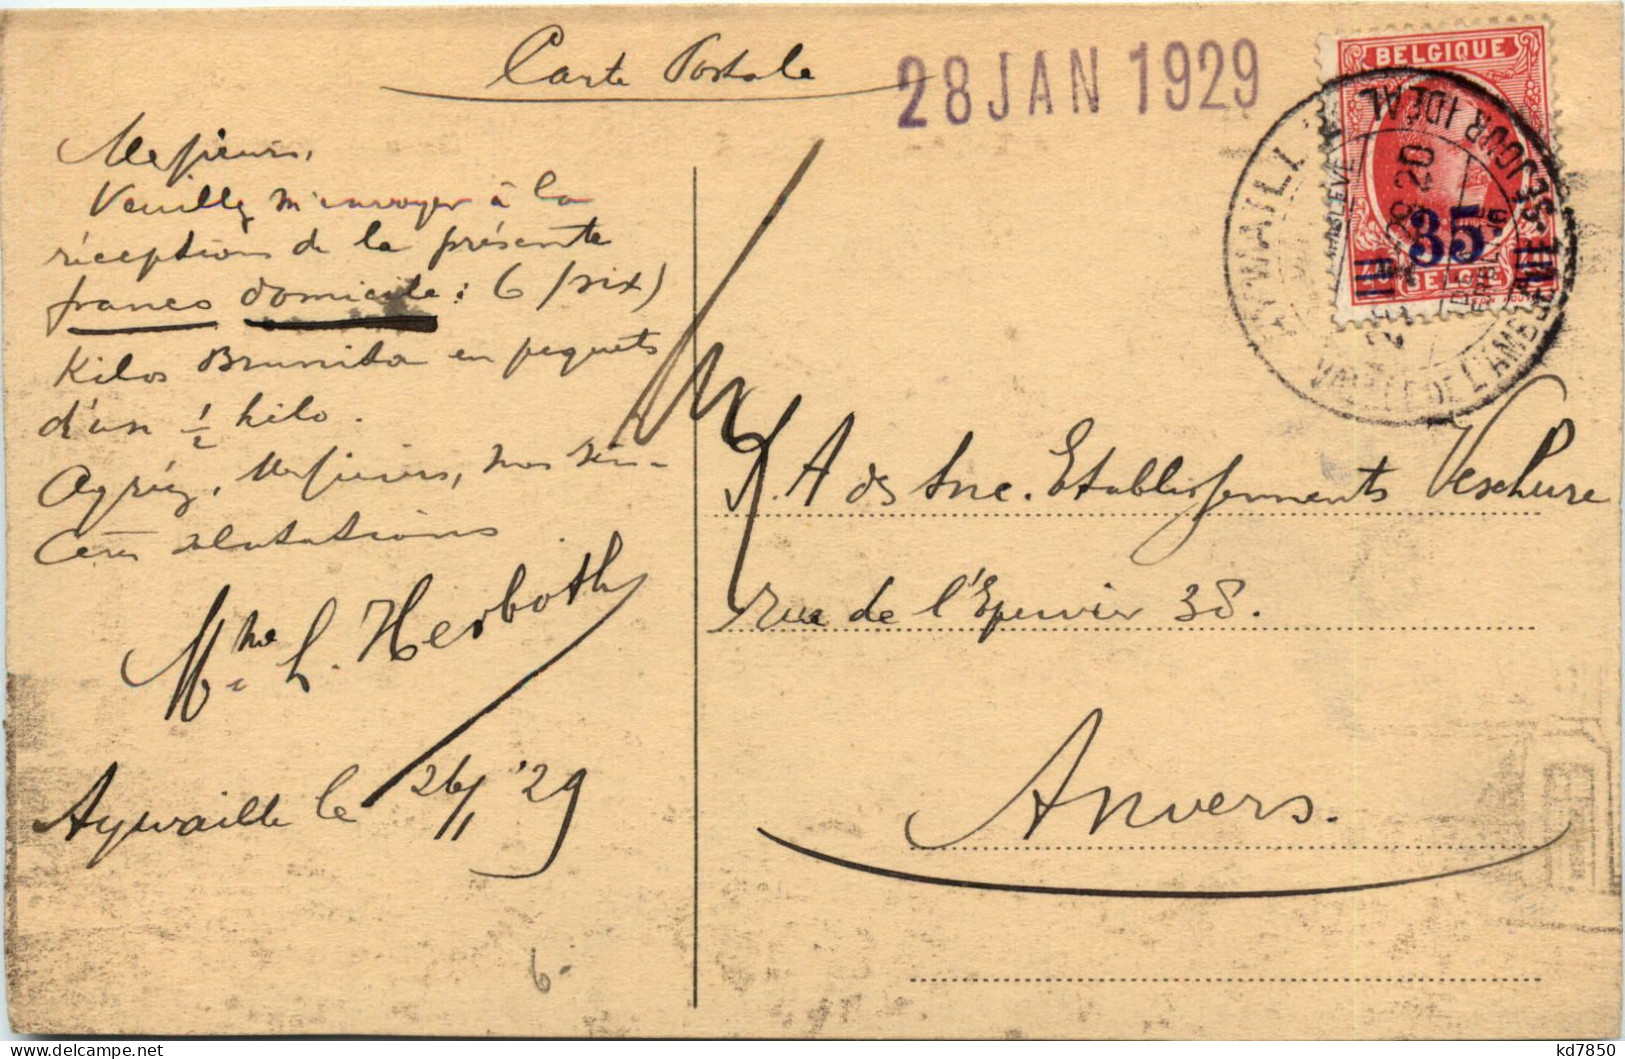 Carte Postale
28 JAN 1929
Messieurs,
Veuillez m'envoyer à la
réception de la présente
franco domicile : 6 (six)
Kilos Brunita en paquets
d'un ½ kilo.
Agréez, Messieurs, nos sin-
cères salutations
Mme L. Herboth
Aywaille le 26/1 '29
6.-
BELGIQUE
35
BELGIE
AYWAILLE
SEJOUR IDEAL
VALLEE DE L'AMBLEVE
S. A des Anc. Etablissements Verschure
rue de l'Epervier 38.
Anvers.
kd7850